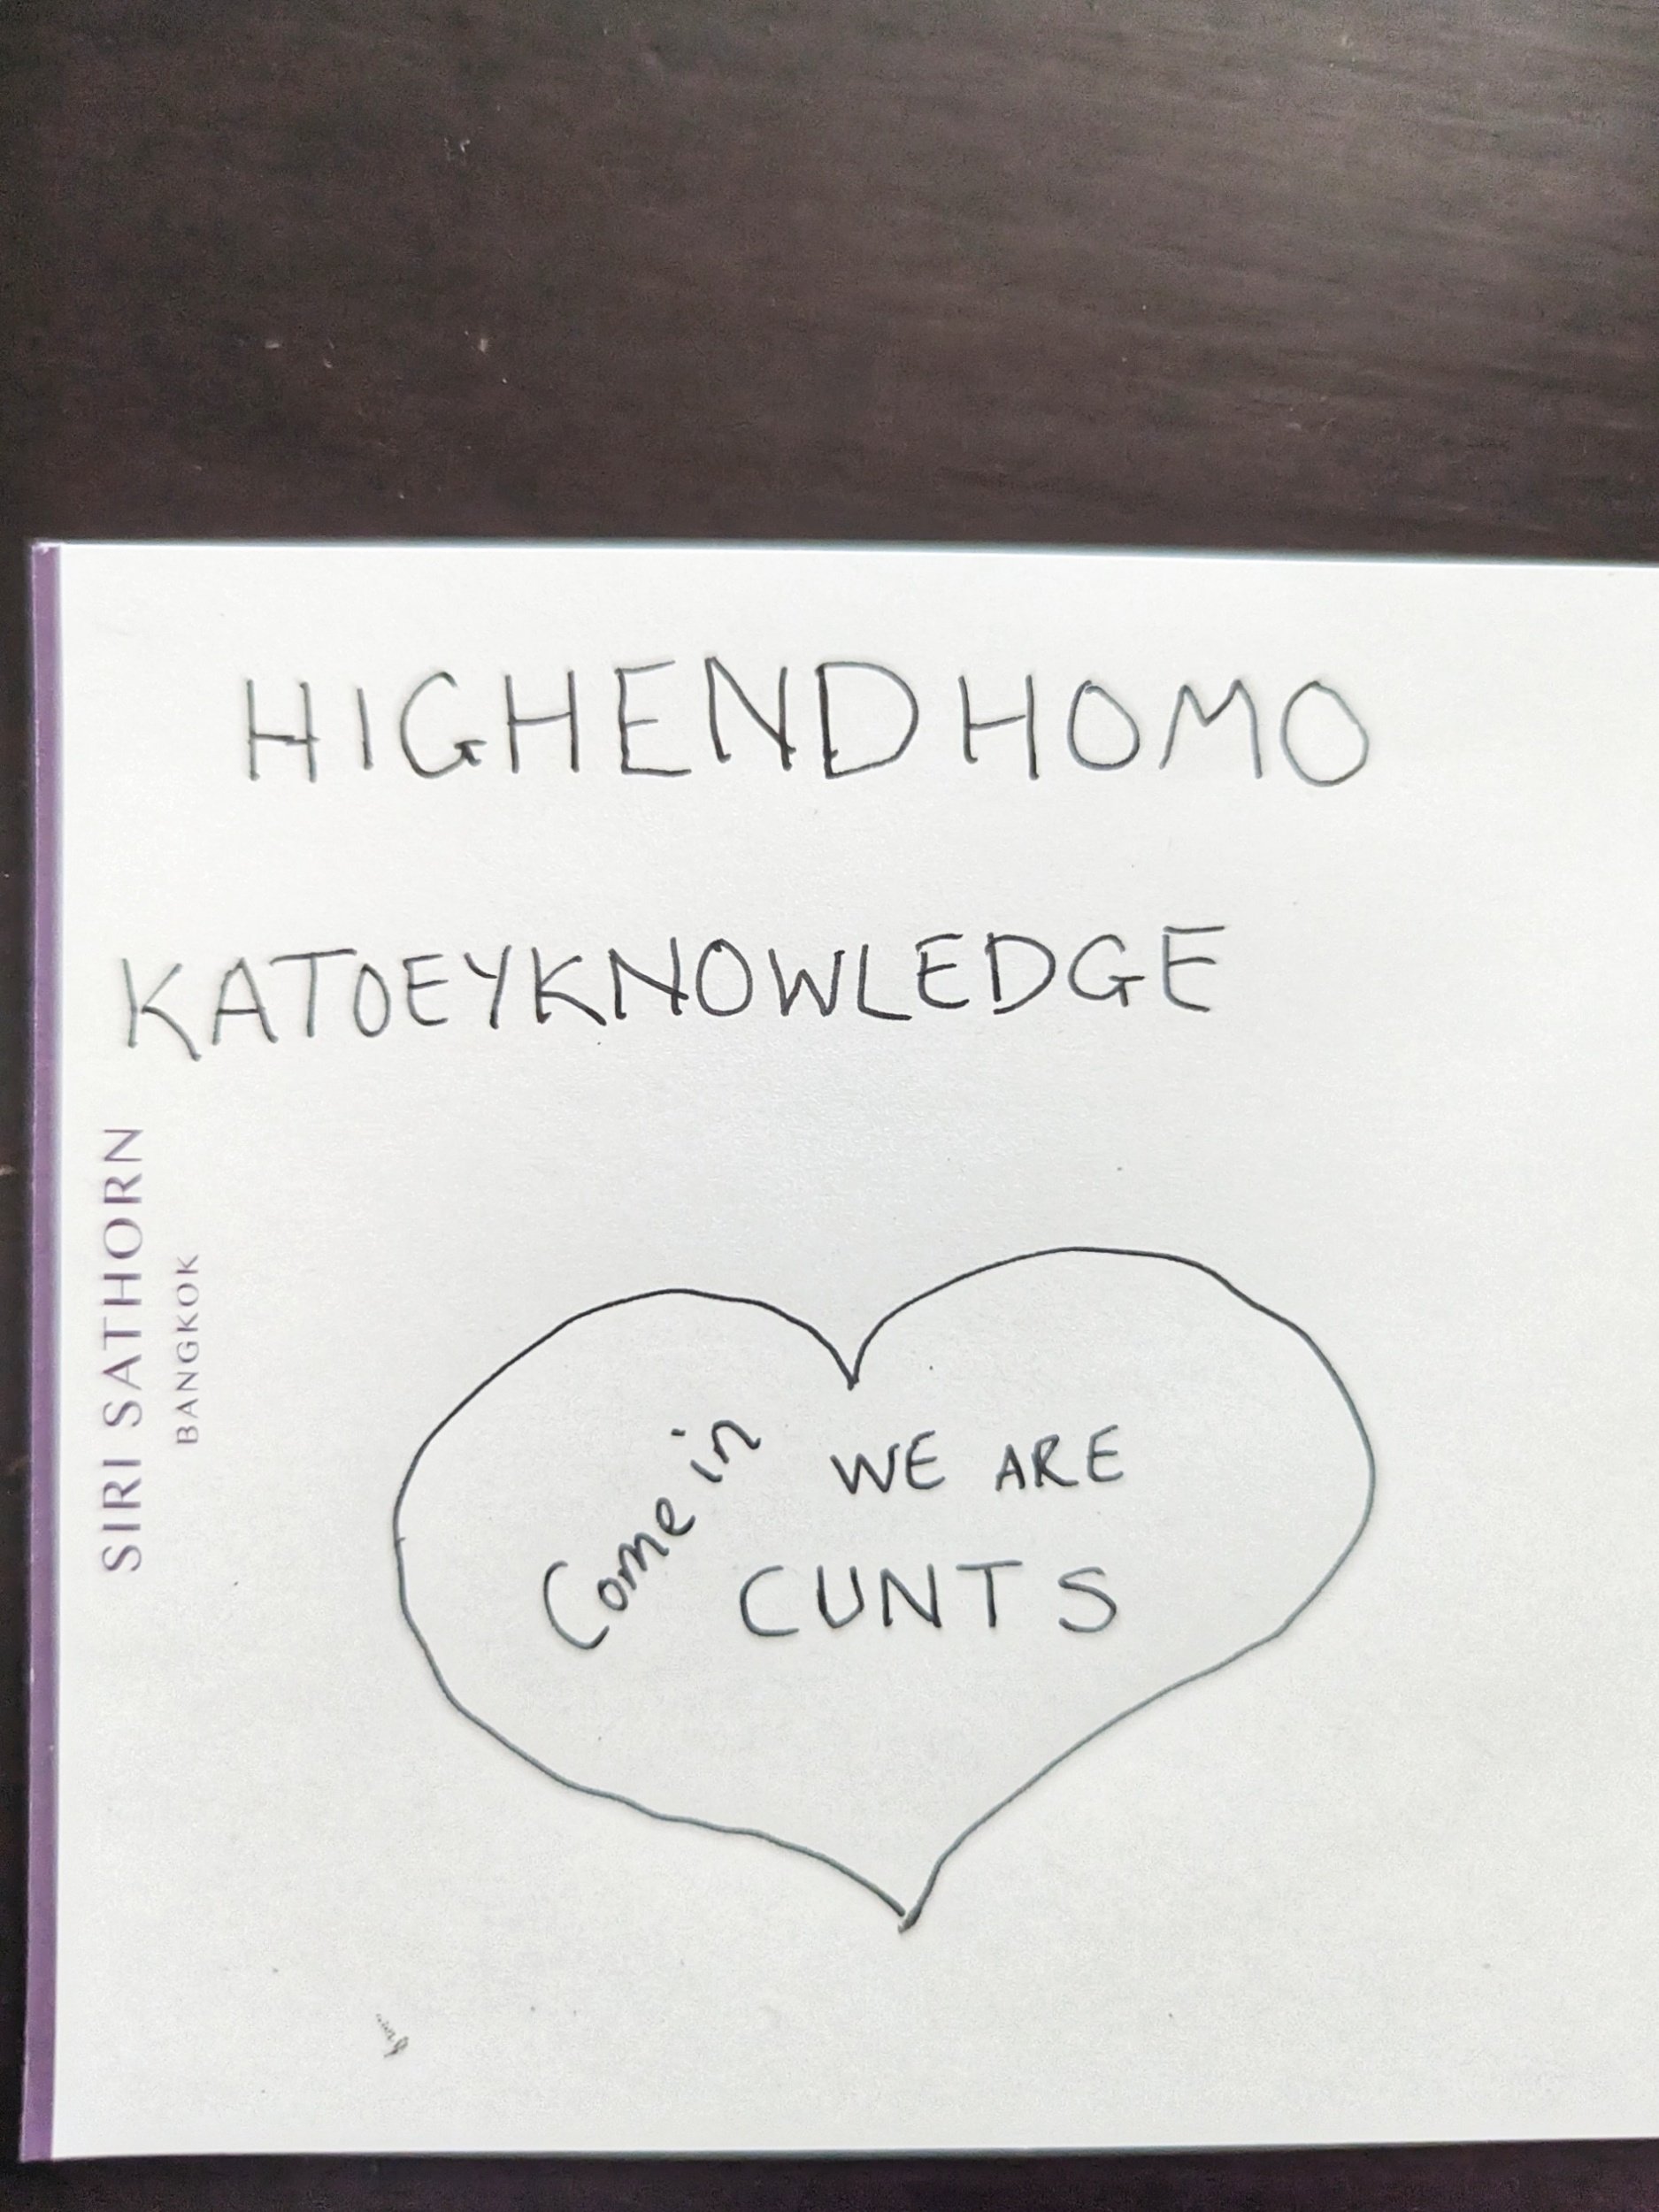 HIGHENDHOMO
KATOEYKNOWLEDGE
SIRI SATHORN
BANGKOK
Come in
WE ARE
CUNTS